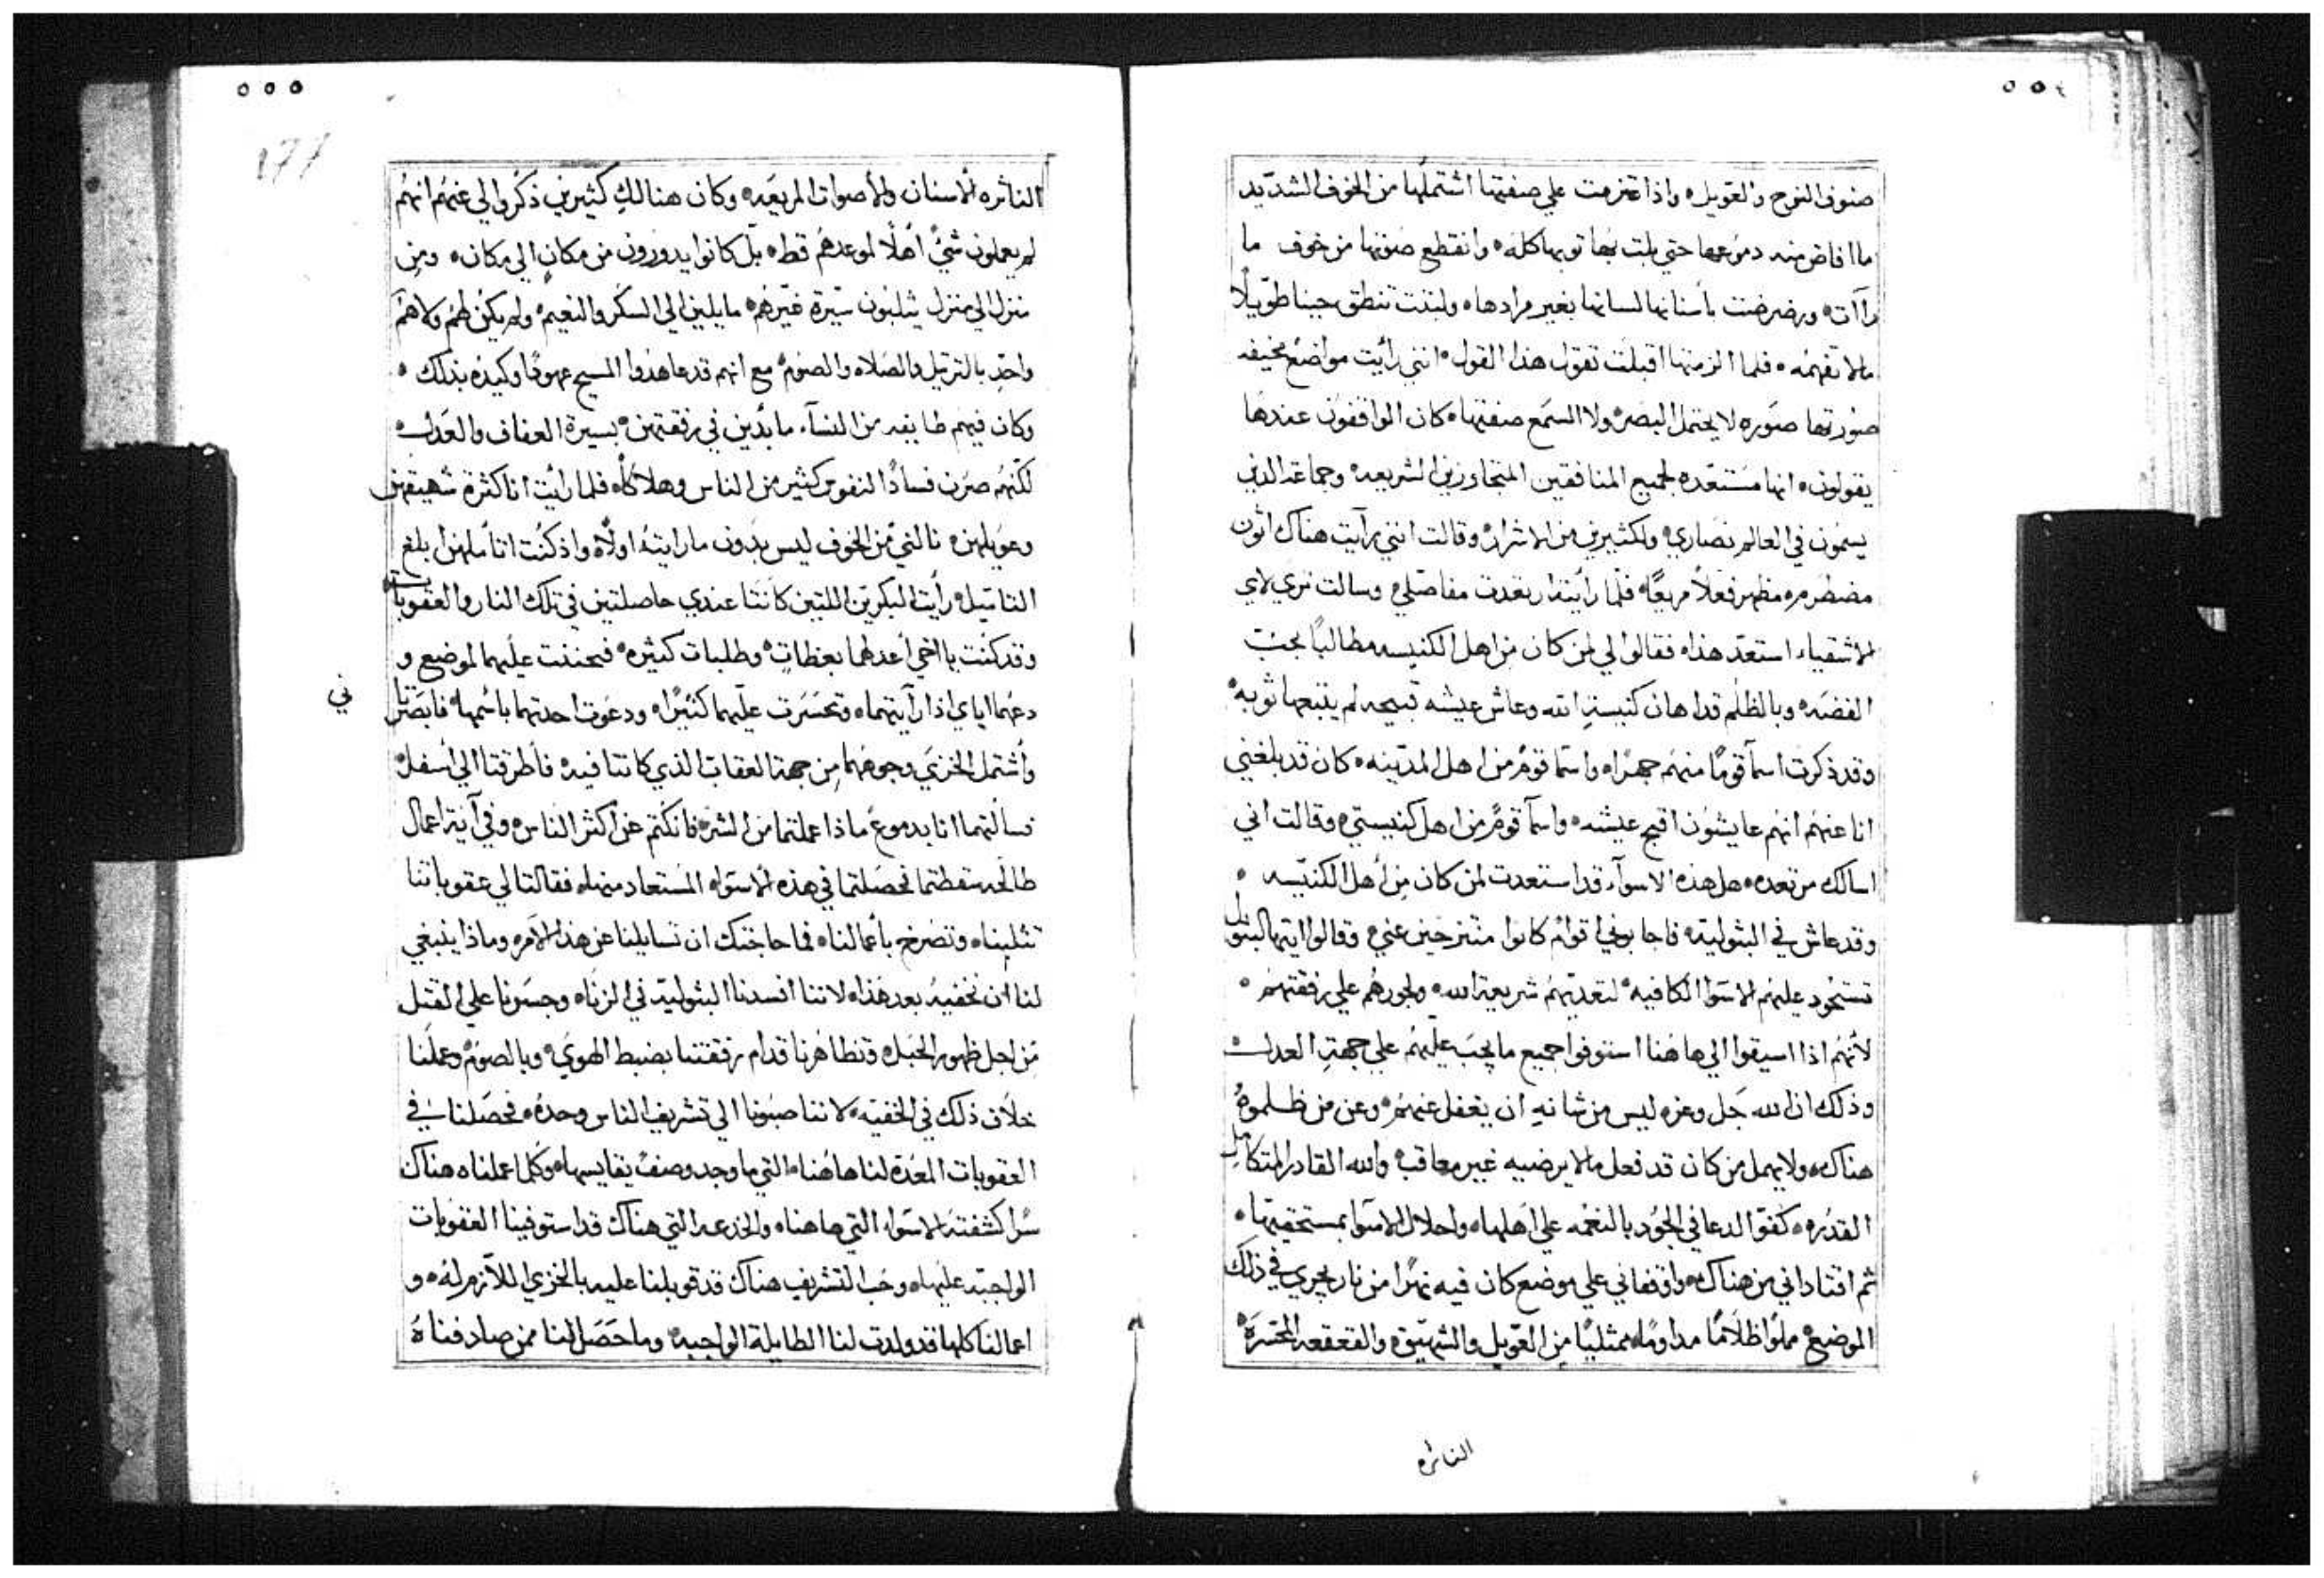 ٥٥٤
صنوف النوح والعويل ه واذا عزمت علي صفتها اشتملها من الخوف الشديد
ما افاض منه دموعها حتي بلت بها ثوبها كله ه وانقطع صوتها من خوف ما
رآت ه ورضرضت بأسنانها لسانها بغير مرادها ه ولبثت تنطق حينا طويلًا
مالا تفهمه ه فلما الزمتها اقبلت تقول هذا القول ه انني رأيت مواضع مخيفه
صورتها صوره لا يحتمل البصر ولا السمع صفتها ه كان الواقفون عندها
يقولون ه انها مستعده لجميع المنافقين المتجاوزين الشريعه ه وجماعة الذين
يسمون في العالم نصاري ه ولكثيرين من الاشرار ه وقالت انني رآيت هناك اتون
مضطرمه مظهر فعلًا مريعًا ه فلما رأيته ارتعدت مفاصلي ه وسالت تري لاي
الاشقياء استعد هذا ه فقالوا لي لمن كان من اهل الكنيسه مطالبًا بحب
الفضه ه وبالظلم قد اهان كنيسة الله وعاش عيشه قبيحه لم يتبعها توبه ه
وقد ذكرت اسمآ قومًا منهم جهرًا ه واسما قوم من اهل المدينه ه كان قد بلغني
انا عنهم انهم عايشون اقبح عيشه ه واسمآ قوم من اهل كنيستي ه وقالت اني
اسالك مرتعده ه هل هذه الاسوآء قد استعدت لمن كان من أهل الكنيسه ه
وقد عاش في البتوليه ه فاجابوني اقوام كانوا منتزحين عني ه وقالوا ايتها البتول
تستحوذ عليهم الاسوا الكافيه ه لتعديهم شريعة الله ه ولجورهم علي رفقتهم ه
لأنهم اذا اسيقوا الي هاهنا استوفوا جميع ما يجب عليهم علي جهة العدل ه
وذلك ان الله جل وعز ه ليس من شانه ان يغفل عنهم ه وعن من ظلموهُ
هناك ه ولا يهمل من كان قد فعل ما لا يرضيه غير معاقب ه والله القادر المتكامل
القدره ه كفو الدعا في الجود بالنعمه علي اهلها ه واحلال الاسوا بمستحقيها ه
ثم اقتاداني من هناك ه واوقفاني علي موضع كان فيه نهرًا من نار يجري في ذلك
الموضع ه مملوا ظلامًا مداومًا ه ممتليًا من العويل والشهيق ه والقعقعه المحتره ه
النائره
٥٥٥
177
النائره الاسنان والأصوات المريعه ه وكان هنالك كثيرين ذكروا لي عنهم انهم
لم يعملون شيٌ أهلًا لموعدهم قط ه بل كانوا يدورون من مكان الي مكان ه ومن
منزل الي منزل يثلبون سيرة غيرهم ه مايلين الي السكر والنعيم ه ولم يكن لهم ولا هم
واحد بالترتيل والصلاه والصوم ه مع انهم قد عاهدوا المسيح عهودًا وكيده بذلك ه
وكان فيهم طايفه من النسآء مابدين في رفقتهن ه بسيرة العفاف والعدل ه
لكنهم صرن فسادًا لنفوس كثير من الناس وهلاكًا ه فلما رايت انا كثرة شهيقهن
وعويلهن ه نالني من الخوف ليس بدون ما رايته اولًا ه واذ كنت اتاملهن ابلغ
التاميل ه رأيت البكرين اللتين كانتا عندي حاصلتين في تلك النار والعقوبات ه
وقد كنت يا اخي أعدهما بعظات ه وطلبات كثيره ه فتحننت عليهما لموضع و
دعهما اياي اذا رآيتهما ه وتحسرت عليهما كثيرًا ه ودعوت احدتهما باسمها ه فابصرتا
ني
وأشتمل الخزي وجوههما من جهة العقاب الذي كانتا فيه ه فأطرقتا الي أسفل ه
فسألتهما انا بدموع ماذا عملتما من الشر ه فانكتم عن أكثر الناس ه وفي آية اعمال
طالحه سقطتما فحصلتما في هذه الاسوا ه المستعاد منها ه فقالتا لي عقوباتنا
تثلبنا ه وتصرخ بأعمالنا ه فما حاجتك ان تسايلينا عن هذا الأمر ه وماذا ينبغي
لنا أن نخفيه بعد هذا ه لاننا افسدنا البتوليه في الزنا ه وجسرنا علي القتل
من اجل ظهور الحبل ه وتظاهرنا قدام رفقتنا بضبط الهوي ه وبالصوم ه وعملنا
خلاف ذلك في الخفيه ه لاننا صبونا الي تشريف الناس وحده ه فحصلنا في
العقوبات المعده لنا هاهنا ه التي ما وجد وصف يقايسها ه وكلما عملناه هناك
سرًا كشفته الاسوا ه التي هاهنا ه والخدعه التي هناك قد استوفينا العقوبات
الواجبه عليها ه وحب التشريف هناك قد قوبلنا عليه بالخزي اللآزم له ه و
اعمالنا كلها قد ولدت لنا الطايلة الواجبه ه وما حصل لنا ممن صادفناهُ